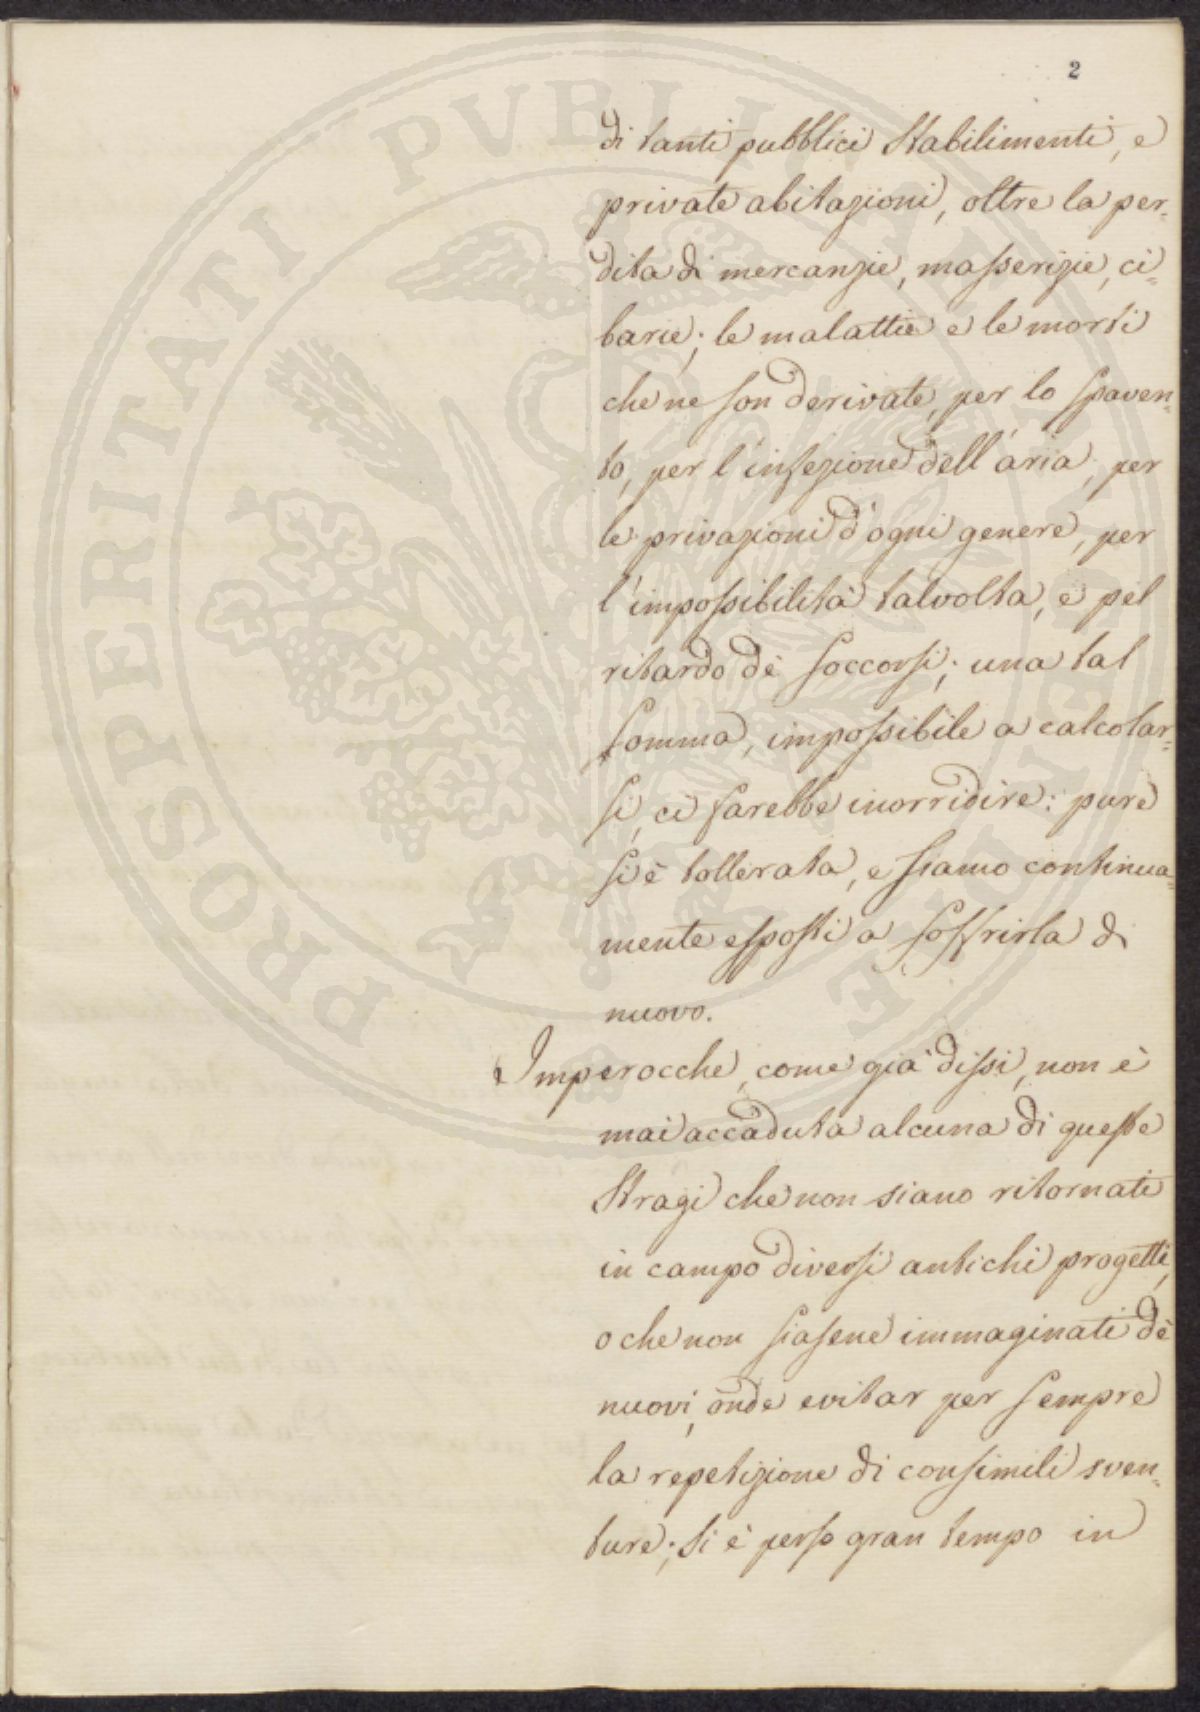 2
PROSPERITATI PUBLICAE
di tanti pubblici Stabilimenti, e
private abitazioni, oltre la per=
dita di mercanzie, masserizie, ci=
barie; le malattie e le morti
che ne son derivate, per lo spaven=
to, per l'infezione dell'aria, per
le privazioni d'ogni genere, per
l'impossibilità talvolta, e pel
ritardo de' soccorsi; una tal
somma, impossibile a calcolar=
si, ci farebbe inorridire: pure
si è tollerata, e siamo continua=
mente esposti a soffrirla di
nuovo.
Imperocche, come già dissi, non è
mai accaduta alcuna di queste
Stragi che non siano ritornati
in campo diversi antichi progetti,
o che non siasene immaginati de'
nuovi, onde evitar per sempre
la repetizione di consimili sven=
ture; si è perso gran tempo in